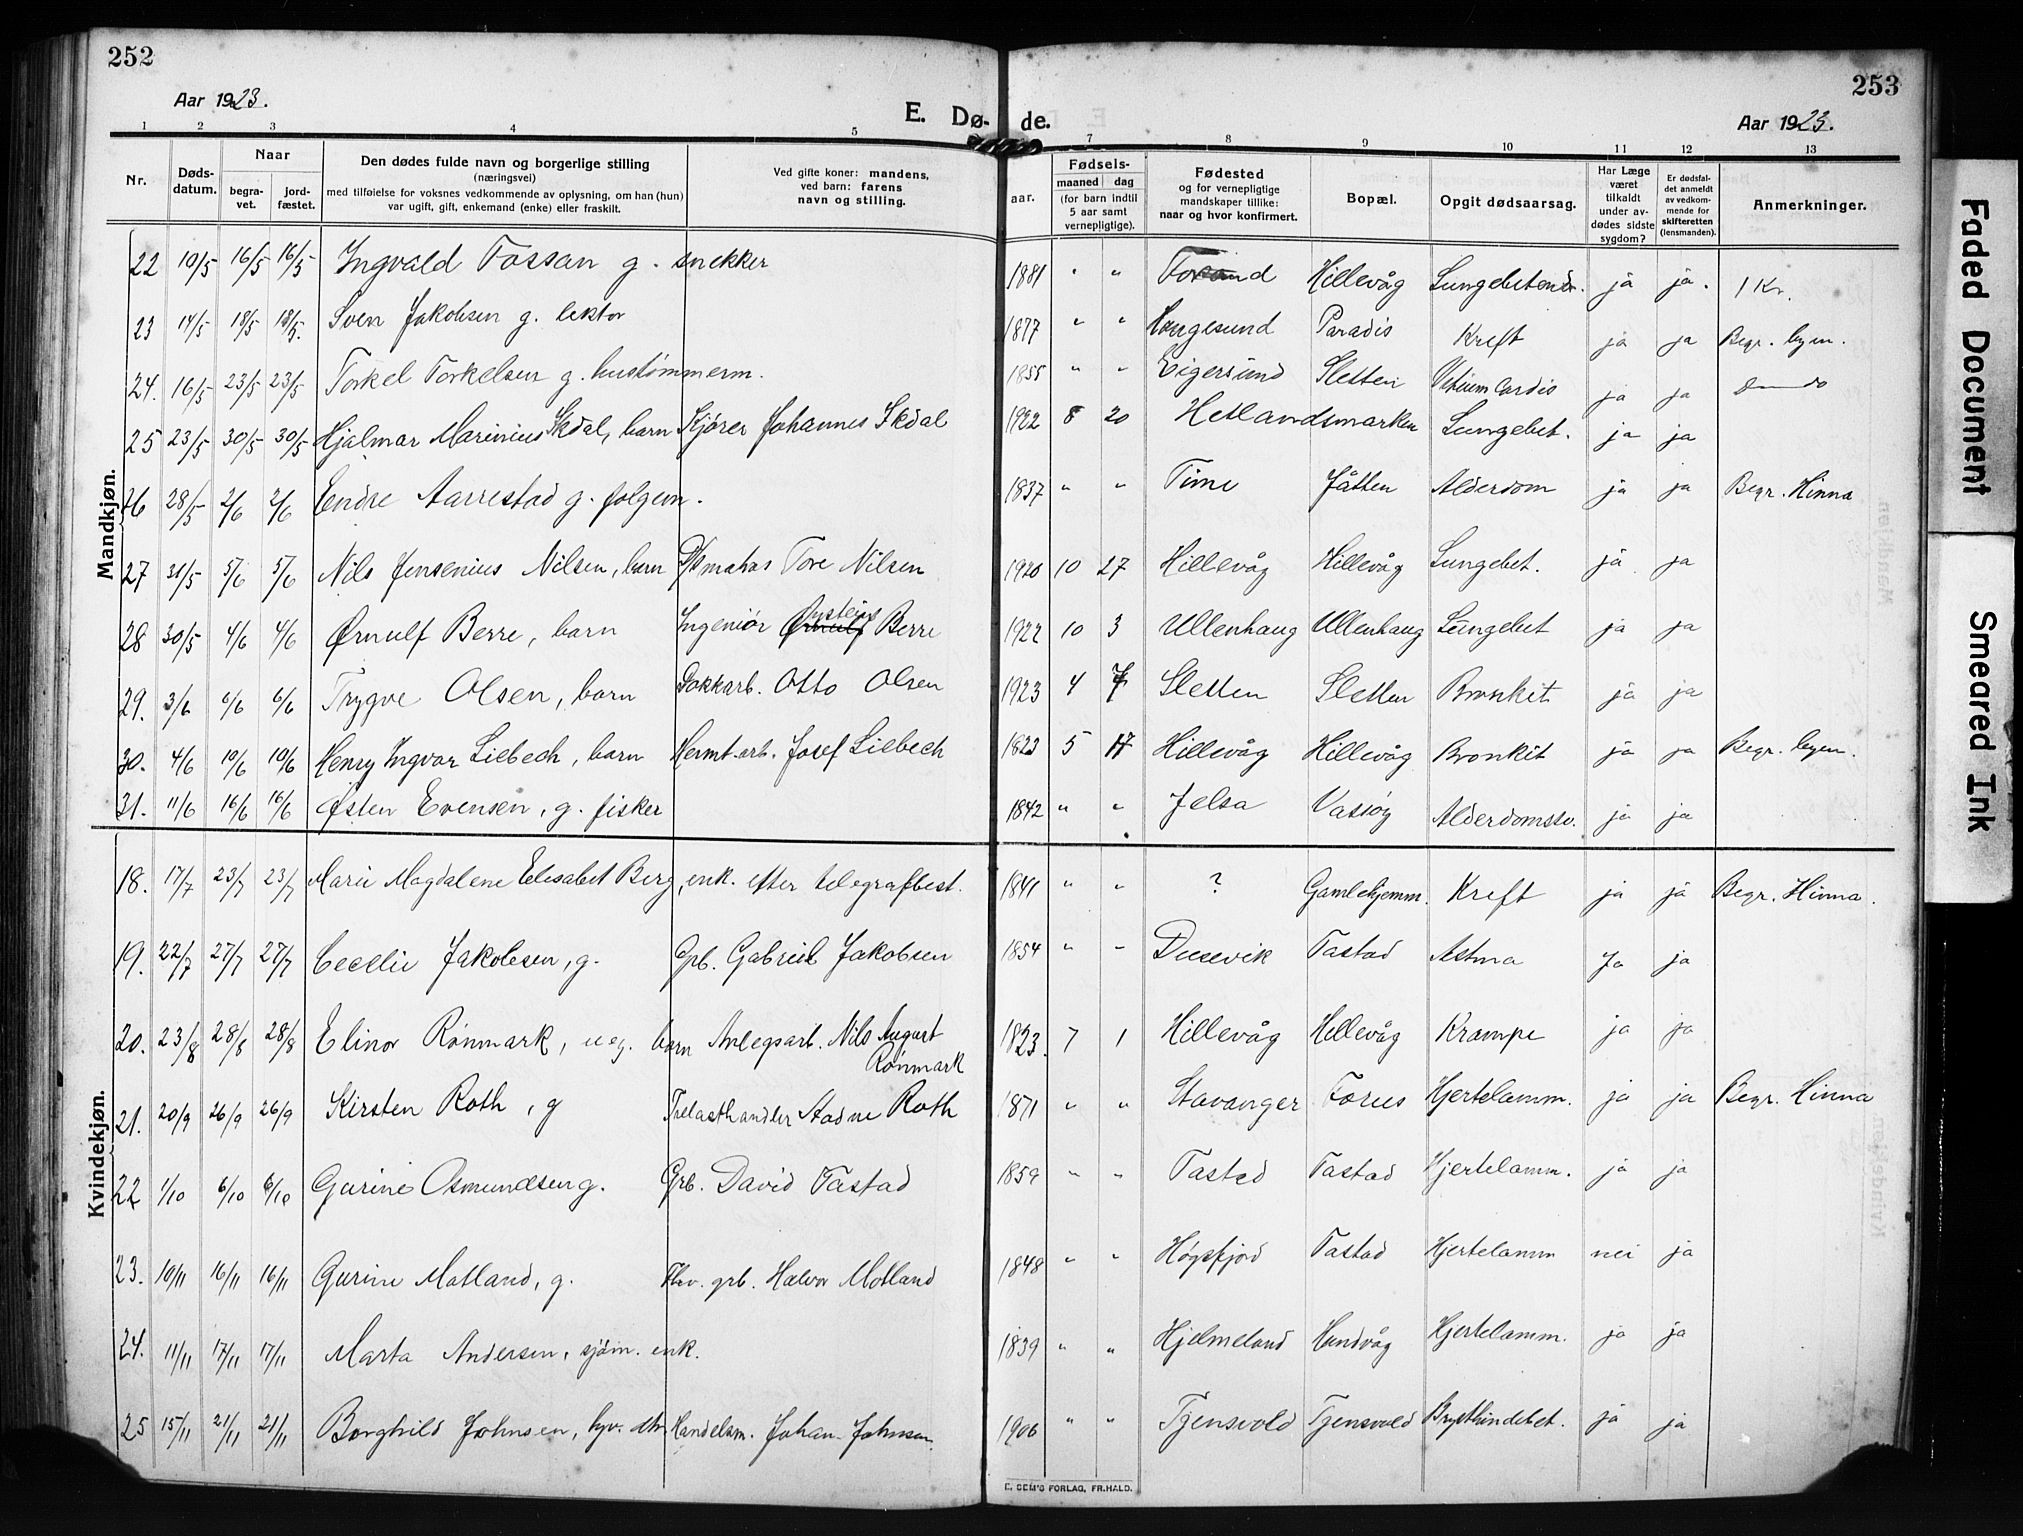 252
253
Aar 1923.
E. Dø- de.
Aar 1923.
1 2 3 4 5 7 8 9 10 11 12 13
Nr. Døds-datum. Naar begra-vet. jord-fæstet. Den dødes fulde navn og borgerlige stilling (næringsvei) med tilføielse for voksnes vedkommende av oplysning, om han (hun) var ugift, gift, enkemand (enke) eller fraskilt. Ved gifte koner: mandens, ved barn: farens navn og stilling. aar. Fødsels- maaned dag (for barn indtil 5 aar samt vernepligtige). Fødested og for vernepligtige mandskaper tillike: naar og hvor konfirmert. Bopæl. Opgit dødsaarsag. Har Læge været tilkaldt under av-dødes sidste sygdom? Er dødsfal-det anmeldt av vedkom-mende for skifteretten (lensmanden). Anmerkninger.
Mandkjøn.
22 10/5 16/5 16/5 Ingvald Fossan g. snekker 1881 " " Forsand Hillevåg Lungebetendr. ja ja. 1 Kr.
23 14/5 18/5 18/5. Sven Jakobsen g. lektor 1877 " " Haugesund Paradis Kreft ja ja Begr. byen.
24. 16/5 23/5 23/5 Torkel Torkelsen g. hustømmerm. 1855 " " Eigersund Sletten Vitium Cordis ja ja
25 23/5 30/5 30/5 Hjalmar Marinius Skdal, barn Skjører Johannes Skdal 1922 8 20 Hetlandsmarken Lungebet. ja ja
26 28/5 2/6 2/6 Endre Aarrestad g. folgem. 1837 " " Time Jåtten Alderdom ja ja Begr. Hinna
27 31/5 5/6 5/6 Nils Jensenius Nilsen, barn Tore Nilsen 1920 10 27 Hillevåg Hillevåg Lungebet. ja ja
28 30/5 4/6 4/6 Ørnulf Berre, barn Ingeniør Ørnulf Berre 1922 10 3 Ullenhaug Ullenhaug Lungebet ja ja
29. 3/6 6/6 6/6 Trygve Olsen, barn Dokkarb. Otto Olsen 1923 4 7 Sletten Sletten Bronkit ja ja
30. 4/6 10/6 10/6 Henry Ingvar Liebech, barn Hermt.arb. Josef Liebech 1823 5 17 Hillevåg Hillevåg Bronkit ja ja Begr. byen.
31. 11/6 16/6 16/6 Østen Evensen, g. fisker 1842 " " Jelsa Vasøy Alderdomssv. ja ja
Kvindekjøn.
18. 17/7 23/7 23/7 Marie Magdalene Elesabet Berg, enk. efter telegrafbest. 1841 " " ? Gamlehjemm. Kreft ja ja Begr. Hinna.
19. 22/7 27/7 27/7 Cecelie Jakobsen, g. Gpb. Gabriel Jakobsen 1854 " " Dusevik Tastad Astma Ja ja
20. 23/8 28/8 28/8 Elinor Rönmark, ueg. barn Anlegsarb. Nils August Rönmark 1823. 7 1 Hillevåg Hellevåg Krampe ja ja
21. 20/9 26/9 26/9 Kirsten Roth, g Trelasthandler Aadne Roth 1871 " " Stavanger Forus Hjertelamm. ja ja Begr. Hinna
22 1/10 6/10 6/10 Gurine Osmundsen g. Grb. David Tastad 1859 " " Tasted Tastad Hjertelamm. ja ja
23. 10/11 16/11 16/11 Gurine Motland, g. Fhv. grb. Halvor Motland 1848 " " Høgsfjord Tastad Hjertelamm nei ja
24. 11/11 17/11 17/11 Marta Andersen, sjøm. enk. 1839 " " Hjelmeland Hundvåg Hjertelamm. ja ja
25 15/11 21/11 21/11 Borghild Johnsen, hjv. dtr. Handelsm. Johan Johnsen 1906 " " Tjensvold Tjensvold Brysthindebet. ja ja
E. SEM'S FORLAG, FR.HALD.
Faded Document
Smeared Ink